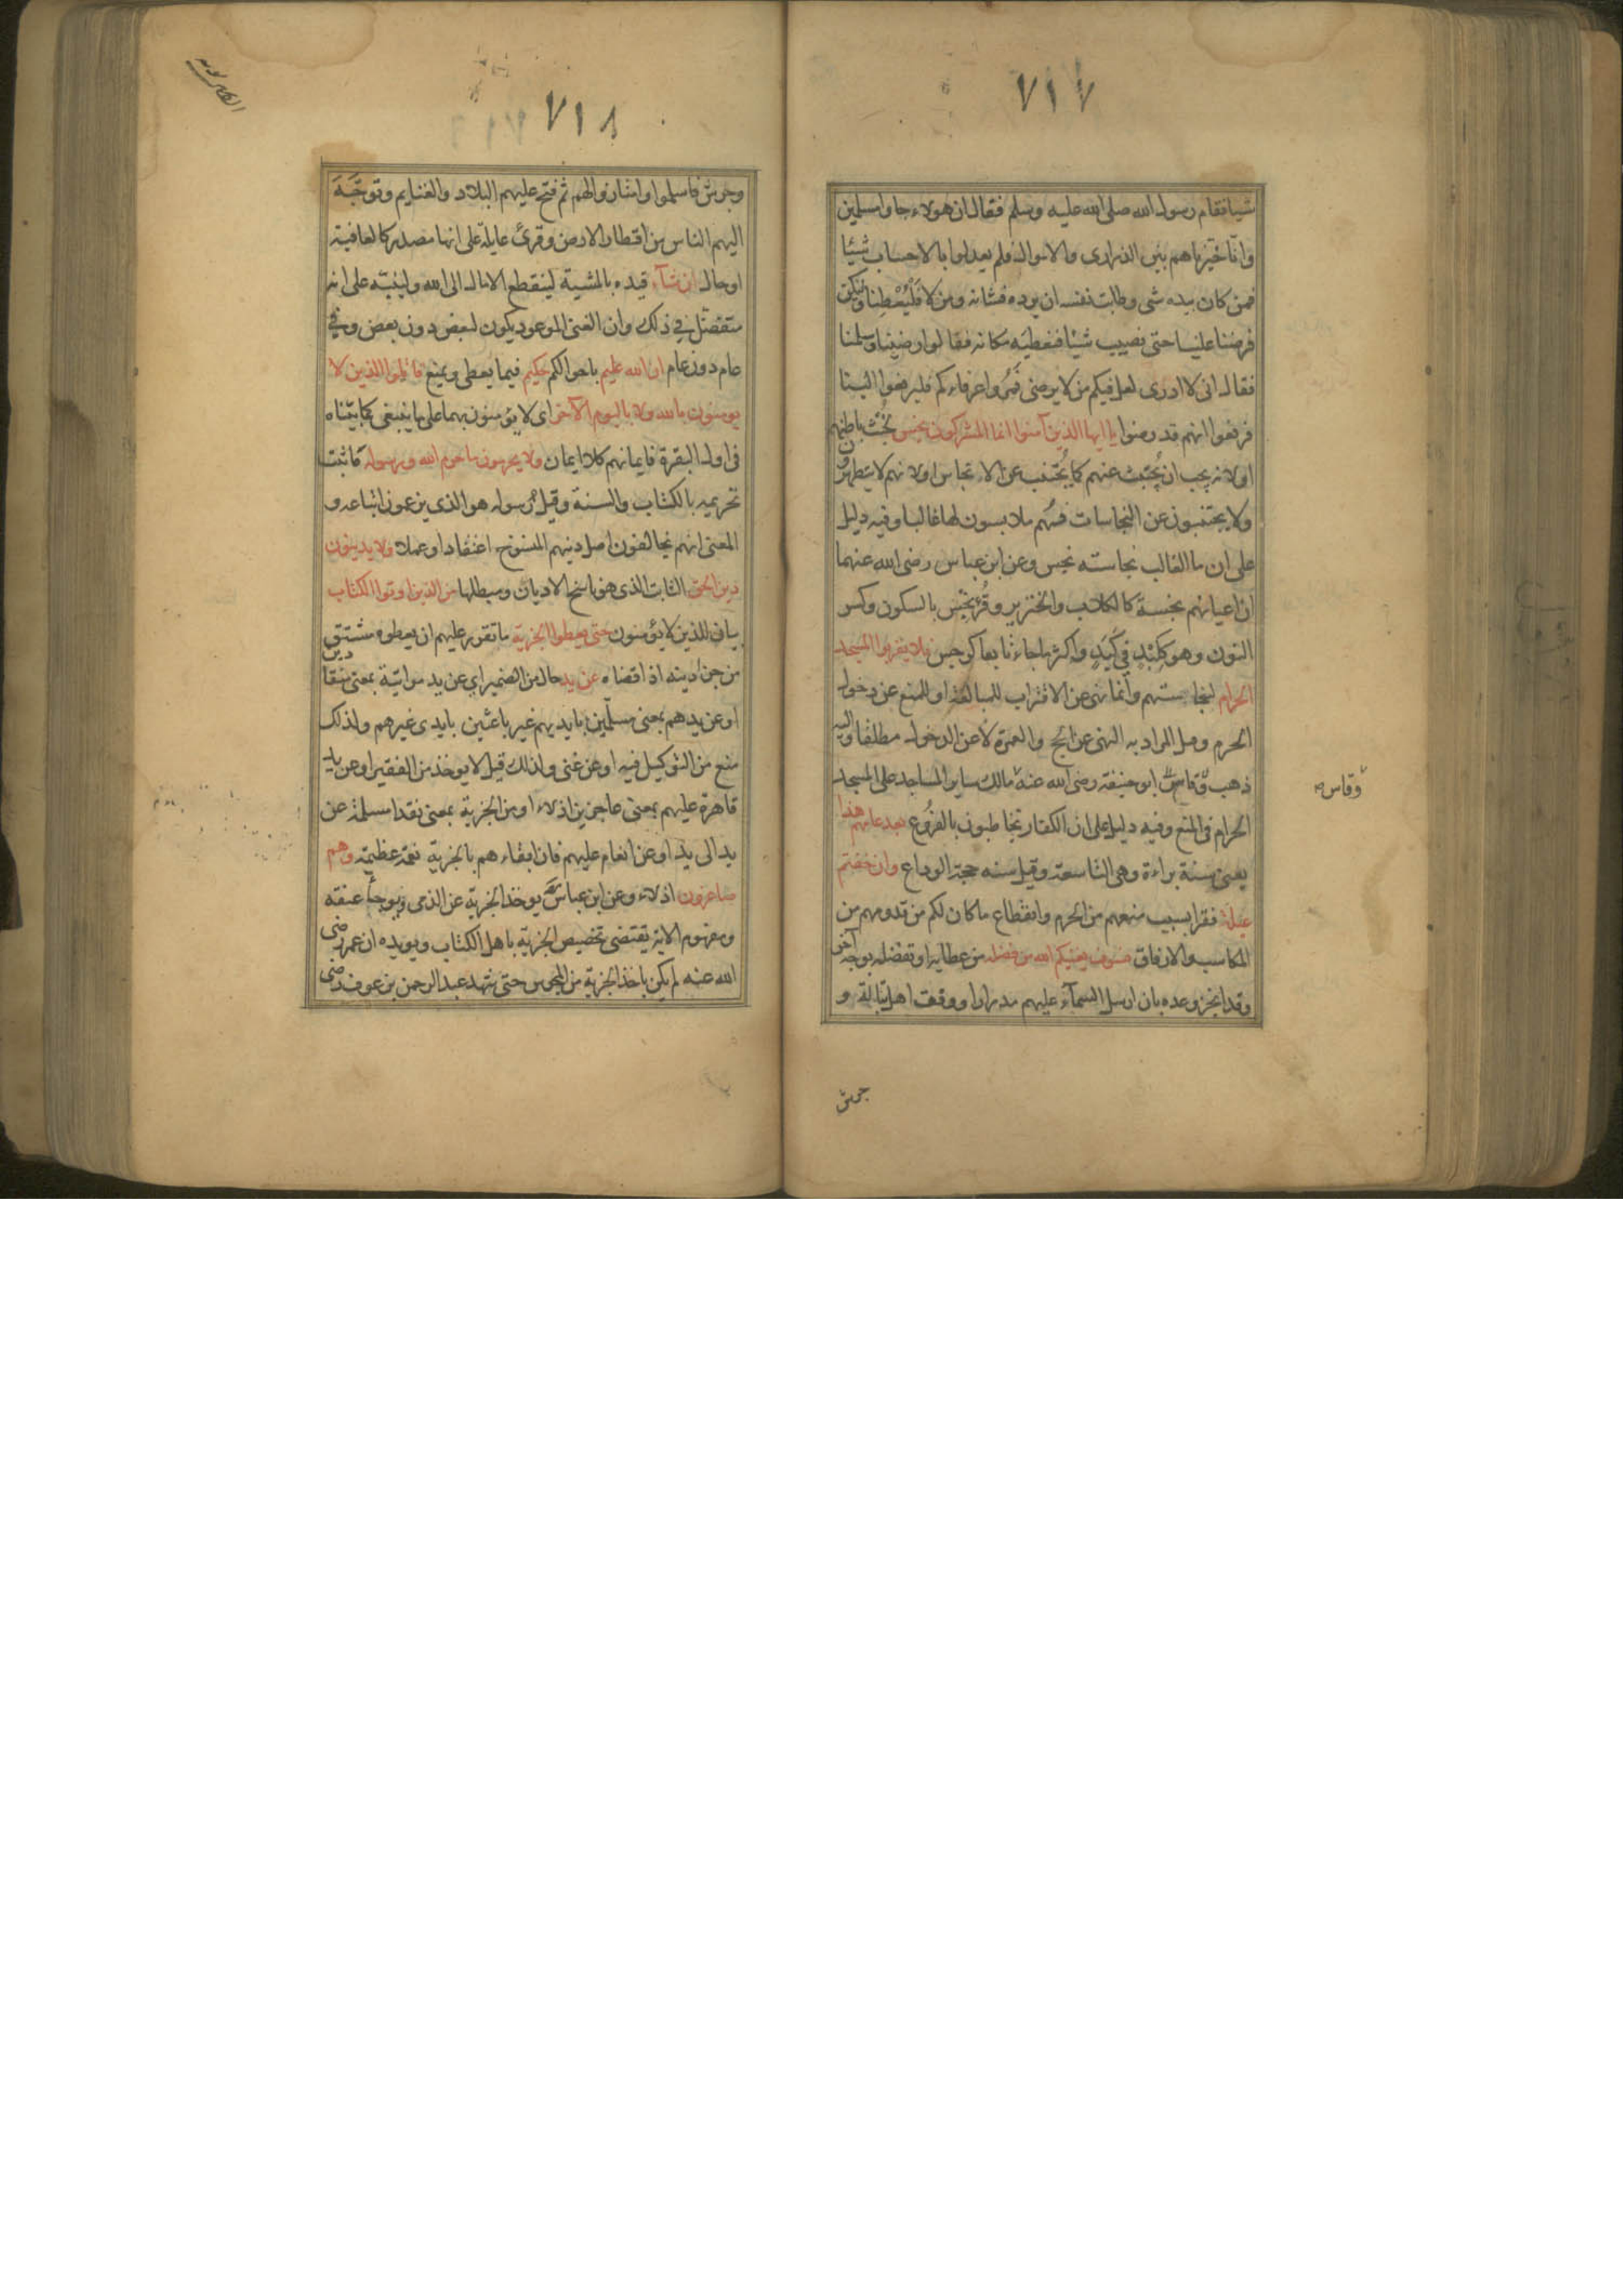 ٧١٧
شيا فقام رسول الله صلى الله عليه وسلم فقال ان هولاء جاوا مسلمين
وانا خيرناهم بين الذرارى والاموال فلم يعدلوا بالاحساب شيئا
فمن كان بيده شى وطابت نفسه ان يرده فشانه ومن لا فليعطنا وليكن
قرضا علينا حتى نصيب شيئا فنعطيه مكانه فقالوا رضينا وسلمنا
فقال انى لا ادرى لعل فيكم من لا يرضى فمروا عرفاءكم فليرفعوا الينا
فرفعوا انهم قد رضوا يا ايها الذين آمنوا انما المشركون نجس لخبث باطنهم
او لانه يجب ان يجتنب عنهم كما يجتنب عن الانجاس او لانهم لا يتطهرون
ولا يجتنبون عن النجاسات فهم ملابسون لها غالبا وفيه دليل
على ان ما الغالب نجاسته نجس وعن ابن عباس رضى الله عنهما
ان اعيانهم نجسة كالكلاب والخنزير وقرئ نجس بالسكون وكسر
النون وهو ككبد في كبد واكثر ما جاء تابعا كرجس فلا يقربوا المسجد
الحرام لنجاستهم وانما نهى عن الاقتراب للمبالغة او للمنع عن دخول
الحرم وقيل المراد به النهى عن الحج والعمرة لا عن الدخول مطلقا واليه
ذهب وقاس ابو حنيفة رضى الله عنه مالك ساير المساجد على المسجد
وقاس
الحرام فى المنع وفيه دليل على ان الكفار مخاطبون بالفروع بعد عامهم هذا
يعنى سنة براءة وهى التاسعة وقيل سنه حجة الوداع وان خفتم
عيلة فقرا بسبب منعهم من الحرم وانقطاع ما كان لكم من قدومهم من
المكاسب والارفاق فسوف يغنيكم الله من فضله من عطايه او تفضله بوجه آخر
وقد انجز وعده بان ارسل السمآء عليهم مدرارا ووفق اهل تبالة و
جرش
٧١٨
وجرش فاسلموا وامتاروا لهم ثم فتح عليهم البلاد والغنايم وتوجه
اليهم الناس من اقطار الارض وقرئ عايلة على انها مصدر كالعافية
او حال ان شآء قيده بالمشية لينقطع الامال الى الله ولينبه على انه
متفضل في ذلك وان الغنى الموعود يكون لبعض دون بعض وفي
عام دون عام ان الله عليم باحوالكم حكيم فيما يعطى ويمنع قاتلوا الذين لا
يومنون بالله ولا باليوم الآخر اى لا يؤمنون بهما على ما ينبغى كما بيناه
فى اول البقرة فايمانهم كلا ايمان ولا يحرمون ما حرم الله ورسوله ما ثبت
تحريمه بالكتاب والسنة وقيل رسوله هو الذى يزعمون اتباعه و
المعنى انهم يخالفون اصل دينهم المنسوخ اعتقادا وعملا ولا يدينون
دين الحق الثابت الذى هو ناسخ الاديان ومبطلها من الذين اوتوا الكتاب
بيان للذين لا يؤمنون حتى يعطوا الجزية ما تقرر عليهم ان يعطوه مشتق
من جزى دينه اذا قضاه عن يد حال من الضمير اي عن يد مواتية بمعنى منقادين
او عن يدهم بمعنى مسلمين بايديهم غير باعثين بايدى غيرهم ولذلك
منع من التوكيل فيه او عن غنى ولذلك قيل لا يوخذ من الفقير او عن يد
قاهرة عليهم بمعنى عاجزين اذلاء او من الجزية بمعنى نقدا مسلمة عن
يد الى يد او عن انعام عليهم فان ابقاءهم بالجزية نعمة عظيمة وهم
صاغرون اذلاء وعن ابن عباس يوخذ الجزية عن الذمى ويوجأ عنقه
ومفهوم الاية يقتضى تخصيص الجزية باهل الكتاب ويويده ان عمر رضى
الله عنه لم يكن ياخذ الجزية من المجوس حتى شهد عبد الرحمن بن عوف رضى